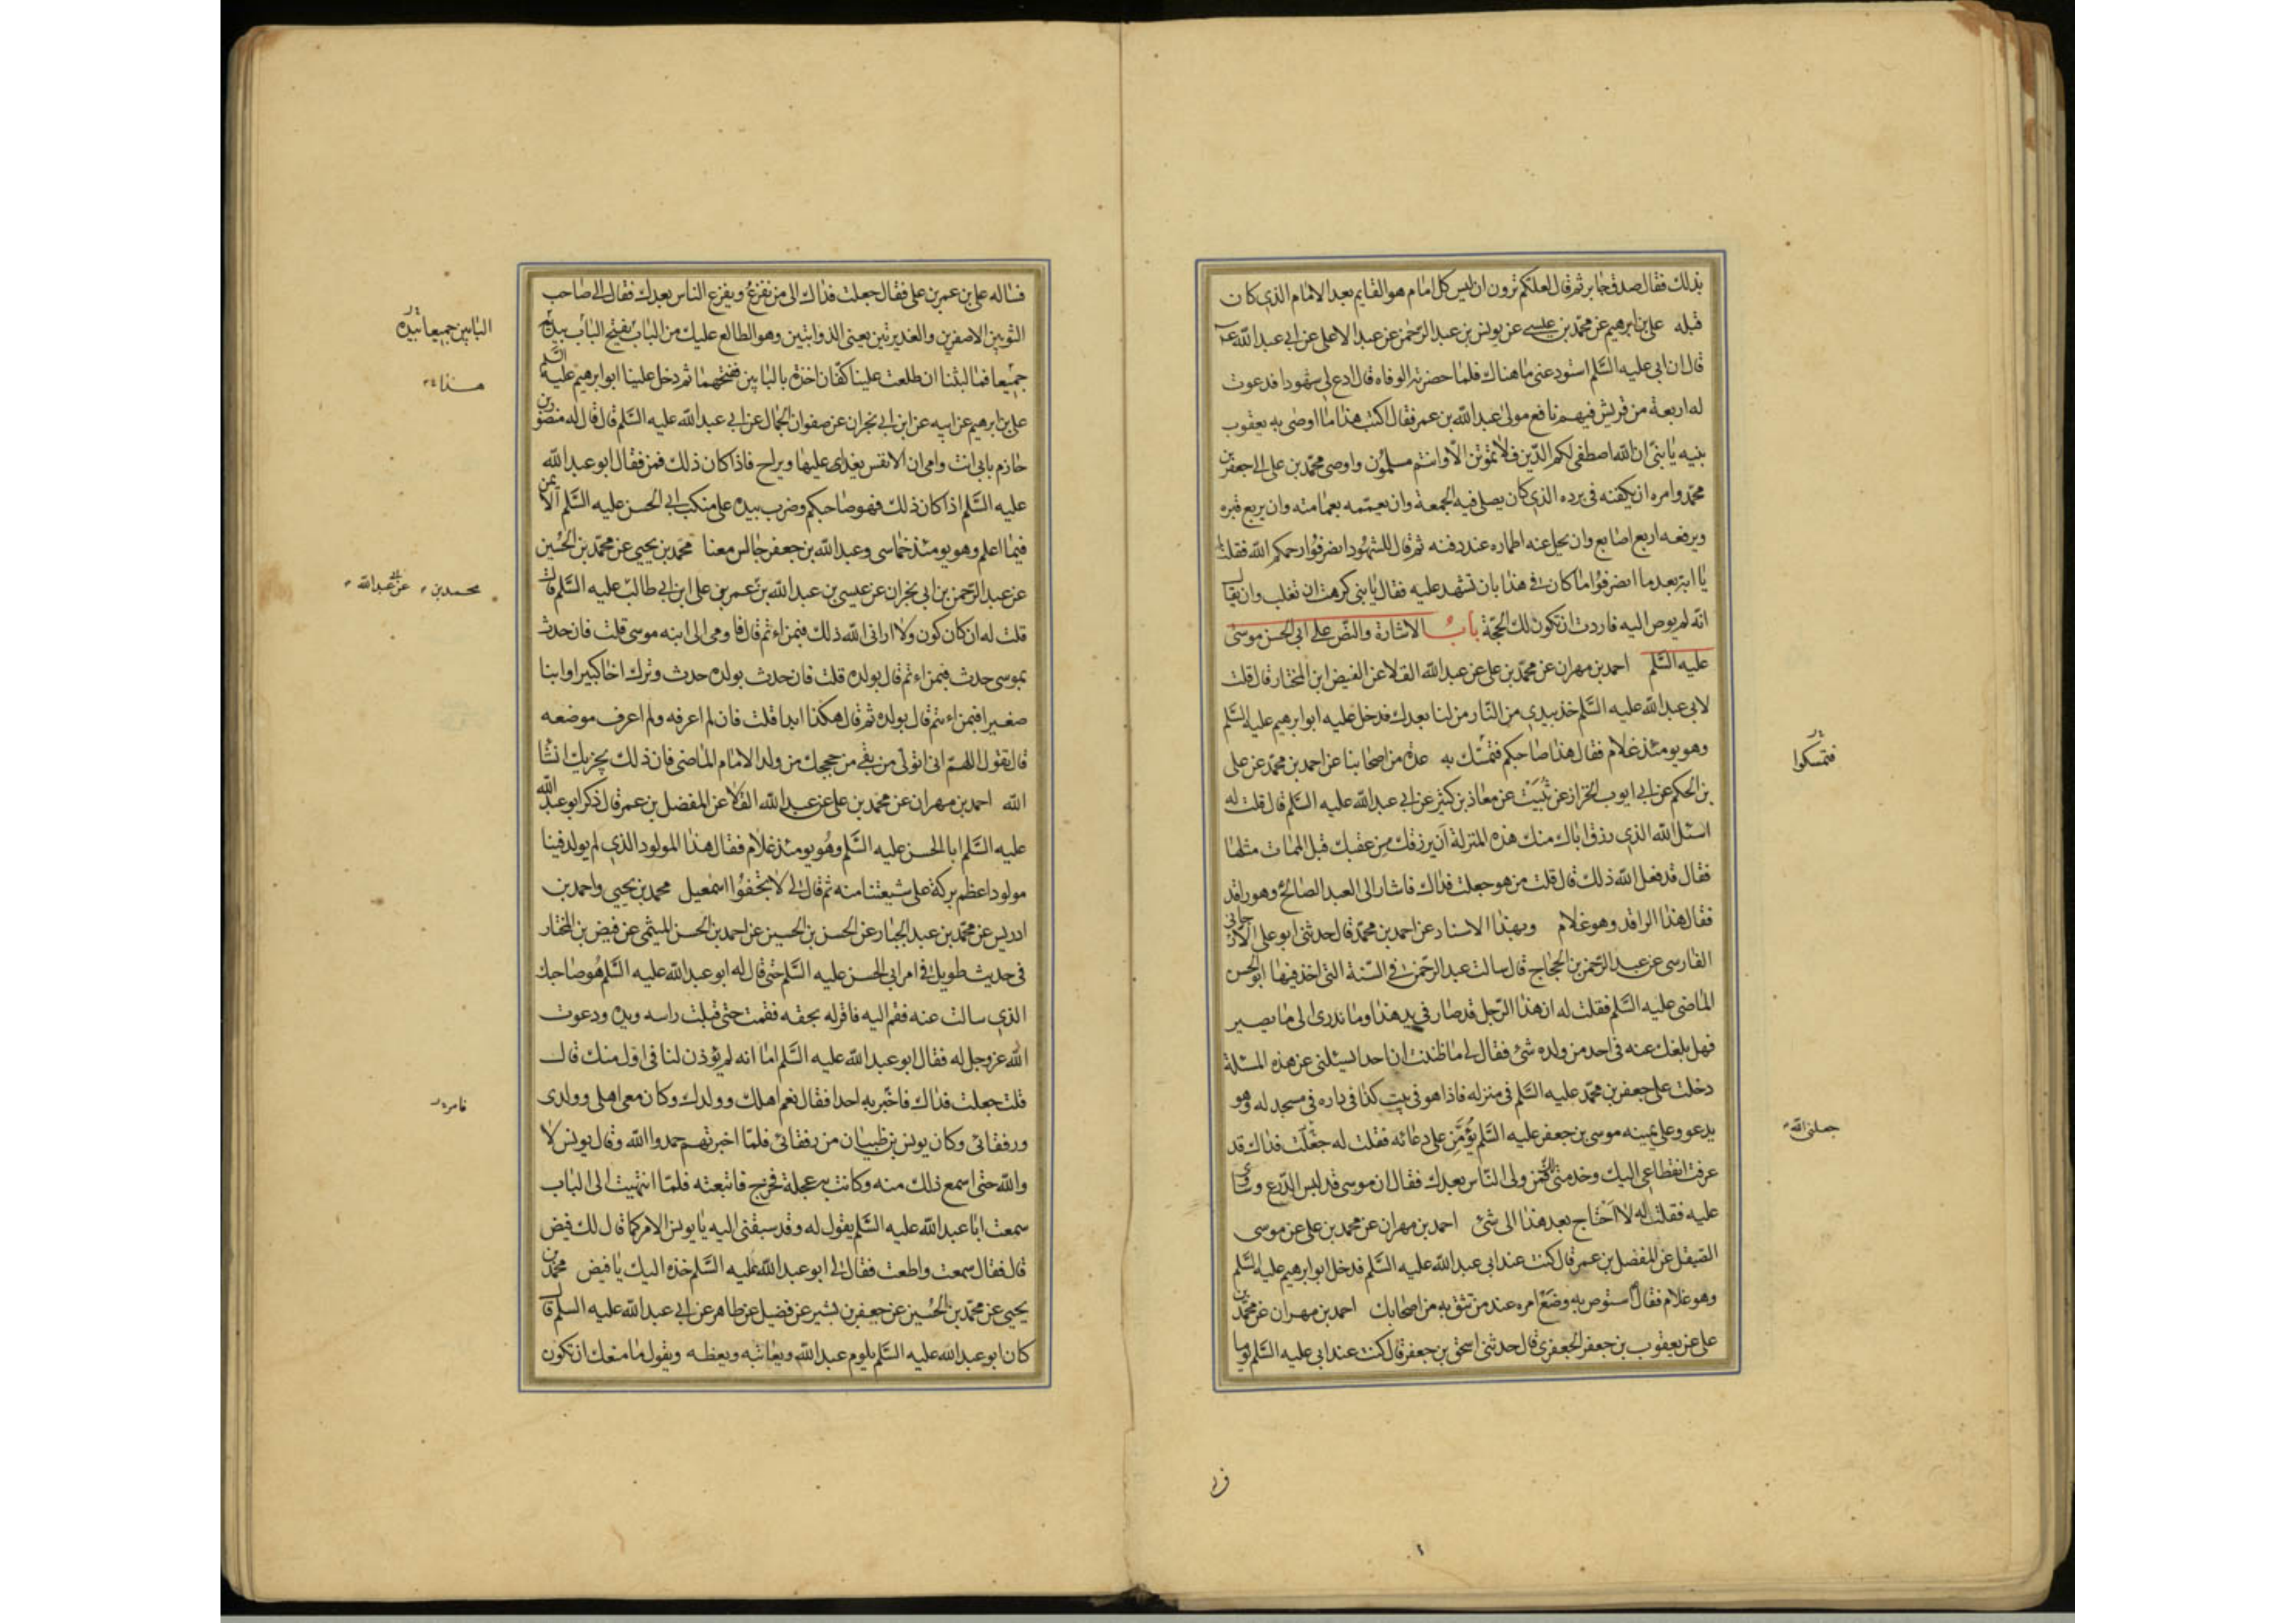 بذلك فقال صدق جابر ثم قال لعلكم ترون ان ليس كل امام هو القايم بعد الامام الذي كان
قبله علي بن ابرهيم عن محمد بن عيسى عن يونس بن عبد الرحمن عن عبد الاعلى عن ابي عبد الله
قال ان ابي عليه السلم استودعني ما هناك فلما حضرته الوفاه قال ادع لي شهودا فدعوت
له اربعة من قريش فيهم نافع مولى عبد الله بن عمر فقال اكتب هذا ما اوصى به يعقوب
بنيه يا بني ان الله اصطفى لكم الدين فلا تموتن الا وانتم مسلمون واوصى محمد بن علي الى جعفر بن
محمد وامره ان يكفنه في برده الذي كان يصلي فيه الجمعة وان يعممه بعمامته وان يربع قبره
ويرفعه اربع اصابع وان يحل عنه اطماره عند دفنه ثم قال للشهود انصرفوا رحمكم الله فقلت
يا ابة بعد ما انصرفوا ما كان في هذا بان تشهد عليه فقال يا بني كرهت ان تغلب وان يقال
انه لم يوص اليه فاردت ان تكون لك الحجة باب الاشارة والنص على ابي الحسن موسى
عليه السلم احمد بن مهران عن محمد بن علي عن عبد الله القلا عن الفيض ابن المختار قال قلت
لابي عبد الله عليه السلم خذ بيدي من النار من لنا بعدك فدخل عليه ابو ابرهيم عليه السلم
وهو يومئذ غلام فقال هذا صاحبكم فتمسك به عدة من اصحابنا عن احمد بن محمد عن علي
فتمسكوا
بن الحكم عن ابي ايوب الخزاز عن ثبيت عن معاذ بن كثير عن ابي عبد الله عليه السلم قال قلت له
اسئل الله الذي رزق اباك منك هذه المنزلة ان يرزقك من عقبك قبل الممات مثلها
فقال قد فعل الله ذلك قال قلت من هو جعلت فداك فاشار الى العبد الصالح وهو راقد
فقال هذا الراقد وهو غلام وبهذا الاسناد عن احمد بن محمد قال حدثني ابو علي الارجاني
الفارسي عن عبد الرحمن بن الحجاج قال سالت عبد الرحمن في السنة التي اخذ فيها ابو الحسن
الماضي عليه السلم فقلت له ان هذا الرجل قد صار في يد هذا وما ندري الى ما يصير
فهل بلغك عنه في احد من ولده شئ فقال لي ما ظننت ان احدا يسئلني عن هذه المسئلة
دخلت على جعفر بن محمد عليه السلم في منزله فاذا هو في بيت كذا في داره في مسجد له وهو
يدعو وعلى يمينه موسى بن جعفر عليه السلم يؤمن على دعائه فقلت له جعلت فداك قد
جعلني الله
عرفت انقطاعي اليك وخدمتي لك فمن ولي الناس بعدك فقال ان موسى قد لبس الدرع وساوى
عليه فقلت له لا احتاج بعد هذا الى شئ احمد بن مهران عن محمد بن علي عن موسى
الصيقل عن المفضل بن عمر قال كنت عند ابي عبد الله عليه السلم فدخل ابو ابرهيم عليه السلم
وهو غلام فقال استوص به وضع امره عند من تثق به من اصحابك احمد بن مهران عن محمد بن
علي عن يعقوب بن جعفر الجعفري قال حدثني اسحق بن جعفر قال كنت عند ابي عليه السلم يوما
فساله علي بن عمر بن علي فقال جعلت فداك الى من نفزع ويفزع الناس بعدك فقال الى صاحب
الثوبين الاصفرين والغديرتين يعني الذوابتين وهو الطالع عليك من الباب يفتح الباب بيديه
البابين جميعا بيده
جميعا فما لبثنا ان طلعت علينا كفان اخذة بالبابين ففتحهما ثم دخل علينا ابو ابرهيم عليه السلم
علي بن ابرهيم عن ابيه عن ابن ابي نجران عن صفوان الجمال عن ابي عبد الله عليه السلم قال قال له منصور بن
حازم بابي انت وامي ان الانفس يغدى عليها ويراح فاذا كان ذلك فمن فقال ابو عبد الله
عليه السلم اذا كان ذلك فهو صاحبكم وضرب بيده على منكب ابي الحسن عليه السلم الايمن
فيما اعلم وهو يومئذ خماسي وعبد الله بن جعفر جالس معنا محمد بن يحيى عن محمد بن الحسين
عن عبد الرحمن بن ابي نجران عن عيسى بن عبد الله بن عمر بن علي ابن ابي طالب عليه السلم قال
محمد بن عن عبد الله
قلت له ان كان كون ولا اراني الله ذلك فبمن اءتم قال فاومى الى ابنه موسى قلت فان حدث
بموسى حدث فبمن اءتم قال بولده قلت فان حدث بولده حدث وترك اخا كبيرا وابنا
صغيرا فبمن اءتم قال بولده ثم قال هكذا ابدا قلت فان لم اعرفه ولم اعرف موضعه
قال تقول اللهم اني اتولى من بقي من حججك من ولد الامام الماضي فان ذلك يجزيك انشا
الله احمد بن مهران عن محمد بن علي عن عبد الله القلا عن المفضل بن عمر قال ذكر ابو عبد الله
عليه السلم ابا الحسن عليه السلم وهو يومئذ غلام فقال هذا المولود الذي لم يولد فينا
مولود اعظم بركة على شيعتنا منه ثم قال لي لا تجفوا اسمعيل محمد بن يحيى واحمد بن
ادريس عن محمد بن عبد الجبار عن الحسن بن الحسين عن احمد بن الحسن الميثمي عن فيض بن المختار
في حديث طويل في امر ابي الحسن عليه السلم حتى قال له ابو عبد الله عليه السلم هو صاحبك
الذي سالت عنه فقم اليه فاقر له بحقه فقمت حتى قبلت راسه ويده ودعوت
الله عز وجل له فقال ابو عبد الله عليه السلم اما انه لم يؤذن لنا في اول منك قال
قلت جعلت فداك فاخبر به احدا فقال نعم اهلك وولدك وكان معي اهلي وولدي
ورفقائي وكان يونس بن ظبيان من رفقائي فلما اخبرتهم حمدوا الله وقال يونس لا
والله حتى اسمع ذلك منه وكانت به عجلة فخرج فاتبعته فلما انتهيت الى الباب
سمعت ابا عبد الله عليه السلم يقول له وقد سبقني اليه يا يونس الامر كما قال لك فيض
قال فقال سمعت واطعت فقال لي ابو عبد الله عليه السلم خذه اليك يا فيض محمد بن
يحيى عن محمد بن الحسين عن جعفر بن بشير عن فضيل عن طاهر عن ابي عبد الله عليه السلم قال
كان ابو عبد الله عليه السلم يلوم عبد الله ويعاتبه ويعظه ويقول ما منعك ان تكون